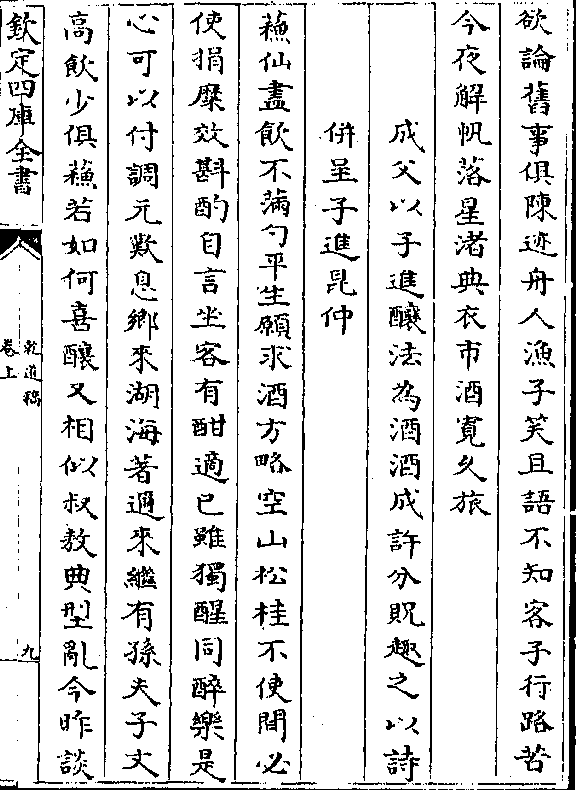 欲論舊事俱陳迹舟人漁子笑且語不知客子行路苦
今夜解帆落星渚典衣市酒寛久旅
成父以子進釀法為酒酒成許分貺趣之以詩
併呈子進昆仲
蘓仙盡飲不滿勺平生願求酒方略空山松桂不使閒必
使捐糜效斟酌自言坐客有酣適已雖獨醒同醉樂是
心可以付調元歎息鄉來湖海著邇來繼有孫夫子丈
高飲少俱蘓若如何喜釀又相似叔敖典型亂今昨談
欽定四庫全書
乾道稿
卷上
九